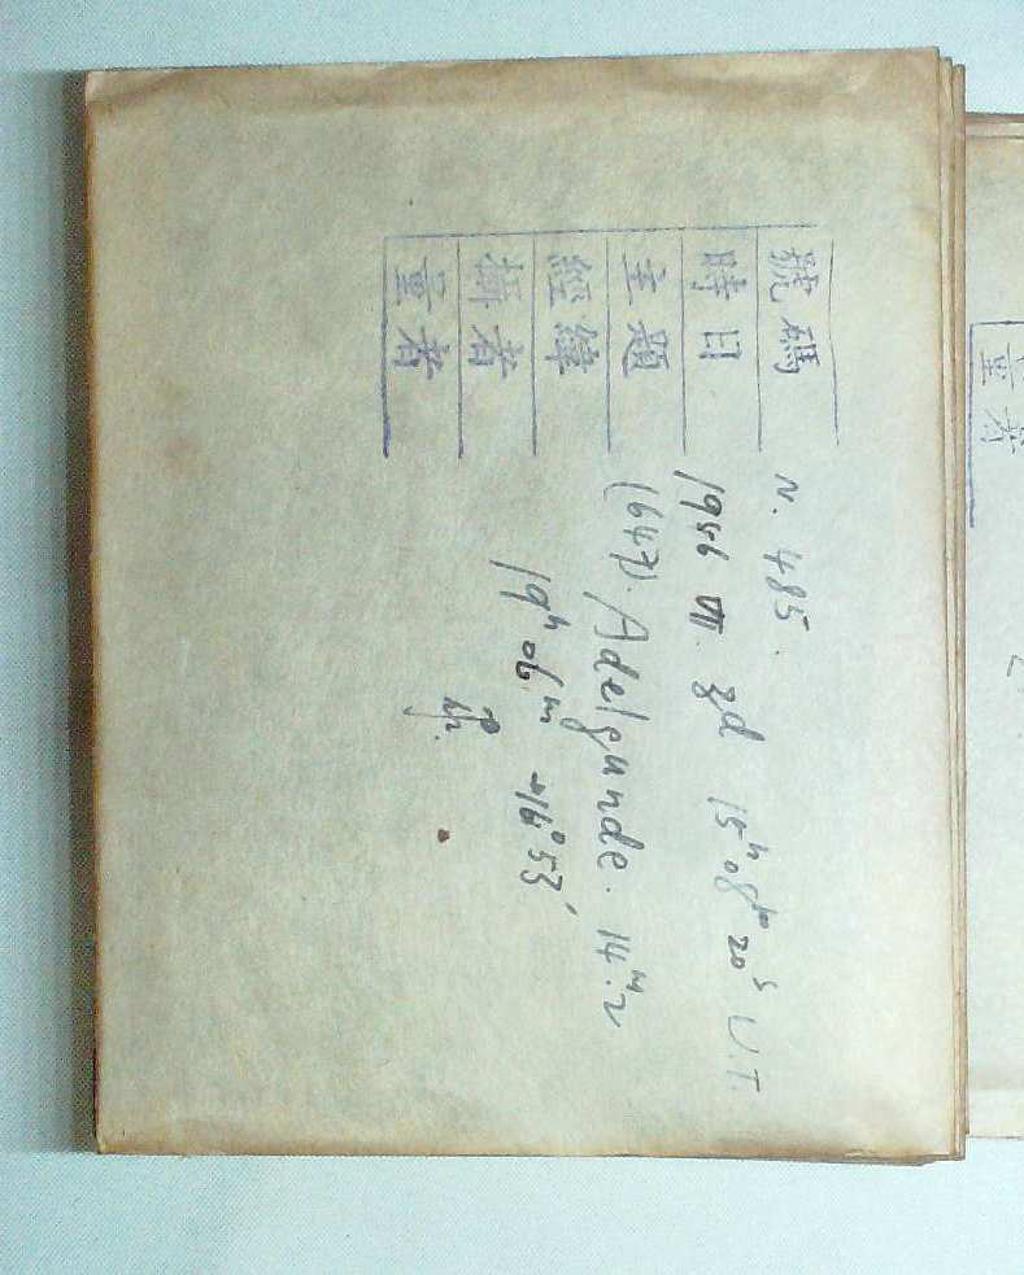 號碼 N. 485.
時日 1956 VII 8d 15h 08m 20s U.T.
主題 (647). Adelgunde. 14m.2
經緯 19h 06m -16° 53′
攝者
量者
量者